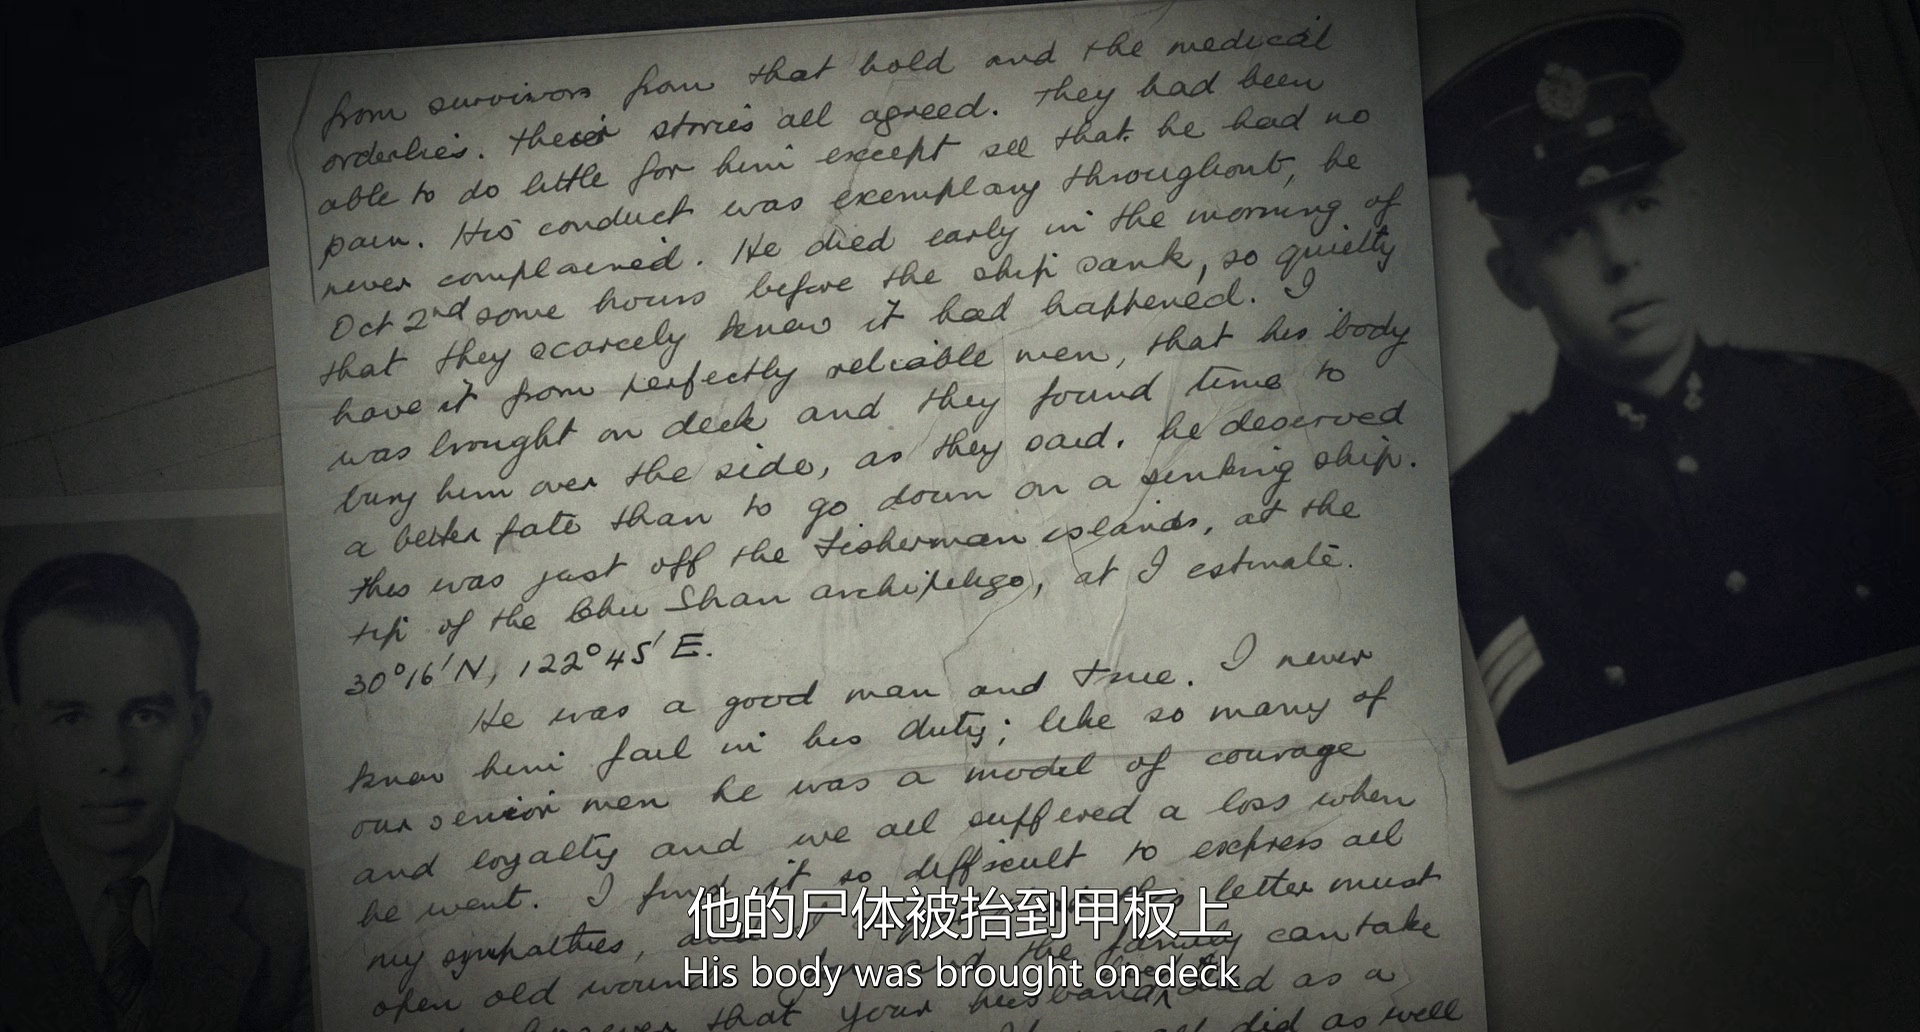 from survivors from that hold and the medical
orderlies. Their stories all agreed. They had been
able to do little for him except see that he had no
pain. His conduct was exemplary throughout, he
never complained. He died early in the morning of
Oct 2nd some hours before the ship sank, so quietly
that they scarcely knew it had happened. I
have it from perfectly reliable men, that his body
was brought on deck and they found time to
bury him over the side, as they said. he deserved
a better fate than to go down on a sinking ship.
This was just off the Fisherman islands, at the
tip of the Chu Shan archipelego, at I estimate.
30°16'N, 122°45'E.
He was a good man and true. I never
knew him fail in his duty; like so many of
our senior men he was a model of courage
and loyalty and we all suffered a loss when
he went. I find it so difficult to express all
my sympathies, this letter must
open old wounds and the family can take
that your husband died as a
did as well
他的尸体被抬到甲板上
His body was brought on deck